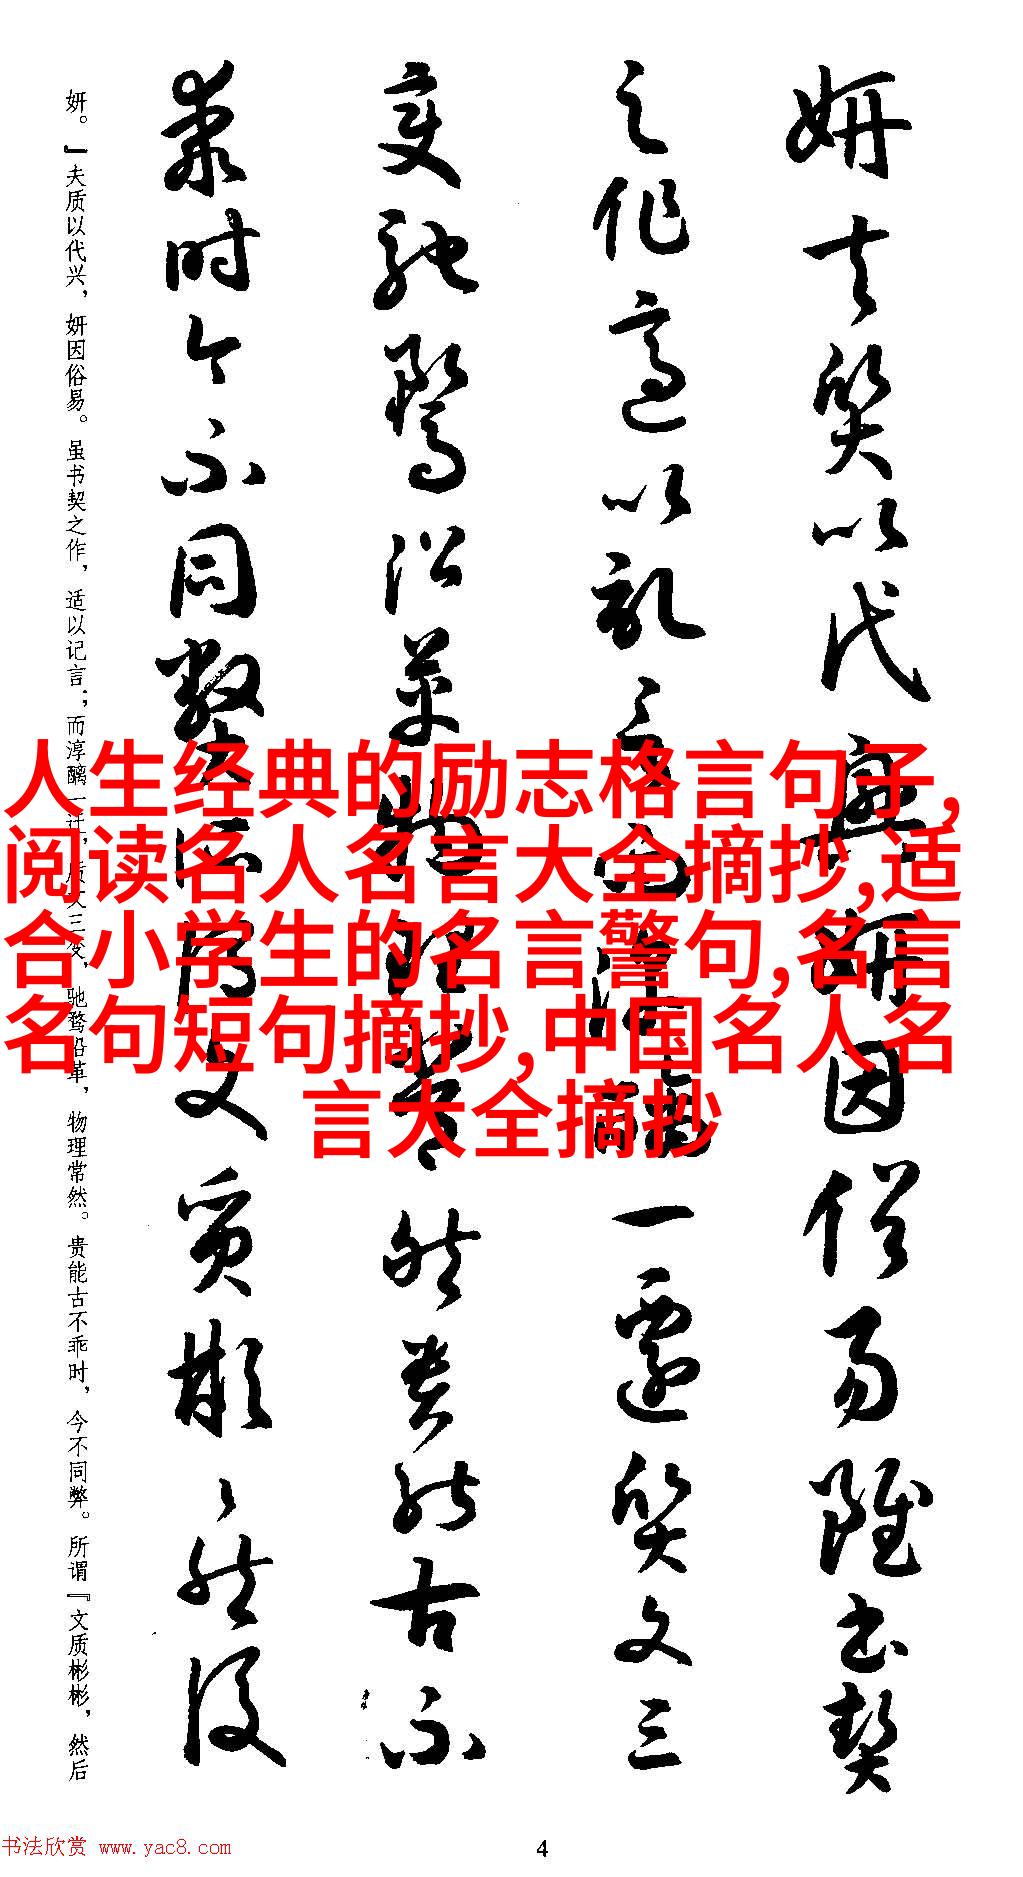 妍夫質以代興妍因俗易雖書契
之作適以記言而淳醨一遷質文三
變馳鶩沿革物理常然貴能古不
乖时今不同弊所谓文質彬彬然後
妍。』夫质以代兴，妍因俗易。虽书契之作，适以记言；而淳醨一迁，质文三变，驰鹜沿革，物理常然。贵能古不乖时，今不同弊。所谓『文质彬彬，然后
人生经典的励志格言句子,
阅读名人名言大全摘抄,适
合小学生的名言警句,名言
名句短句摘抄,中国名人名
言大全摘抄
书法欣赏 www.yac8.com
4